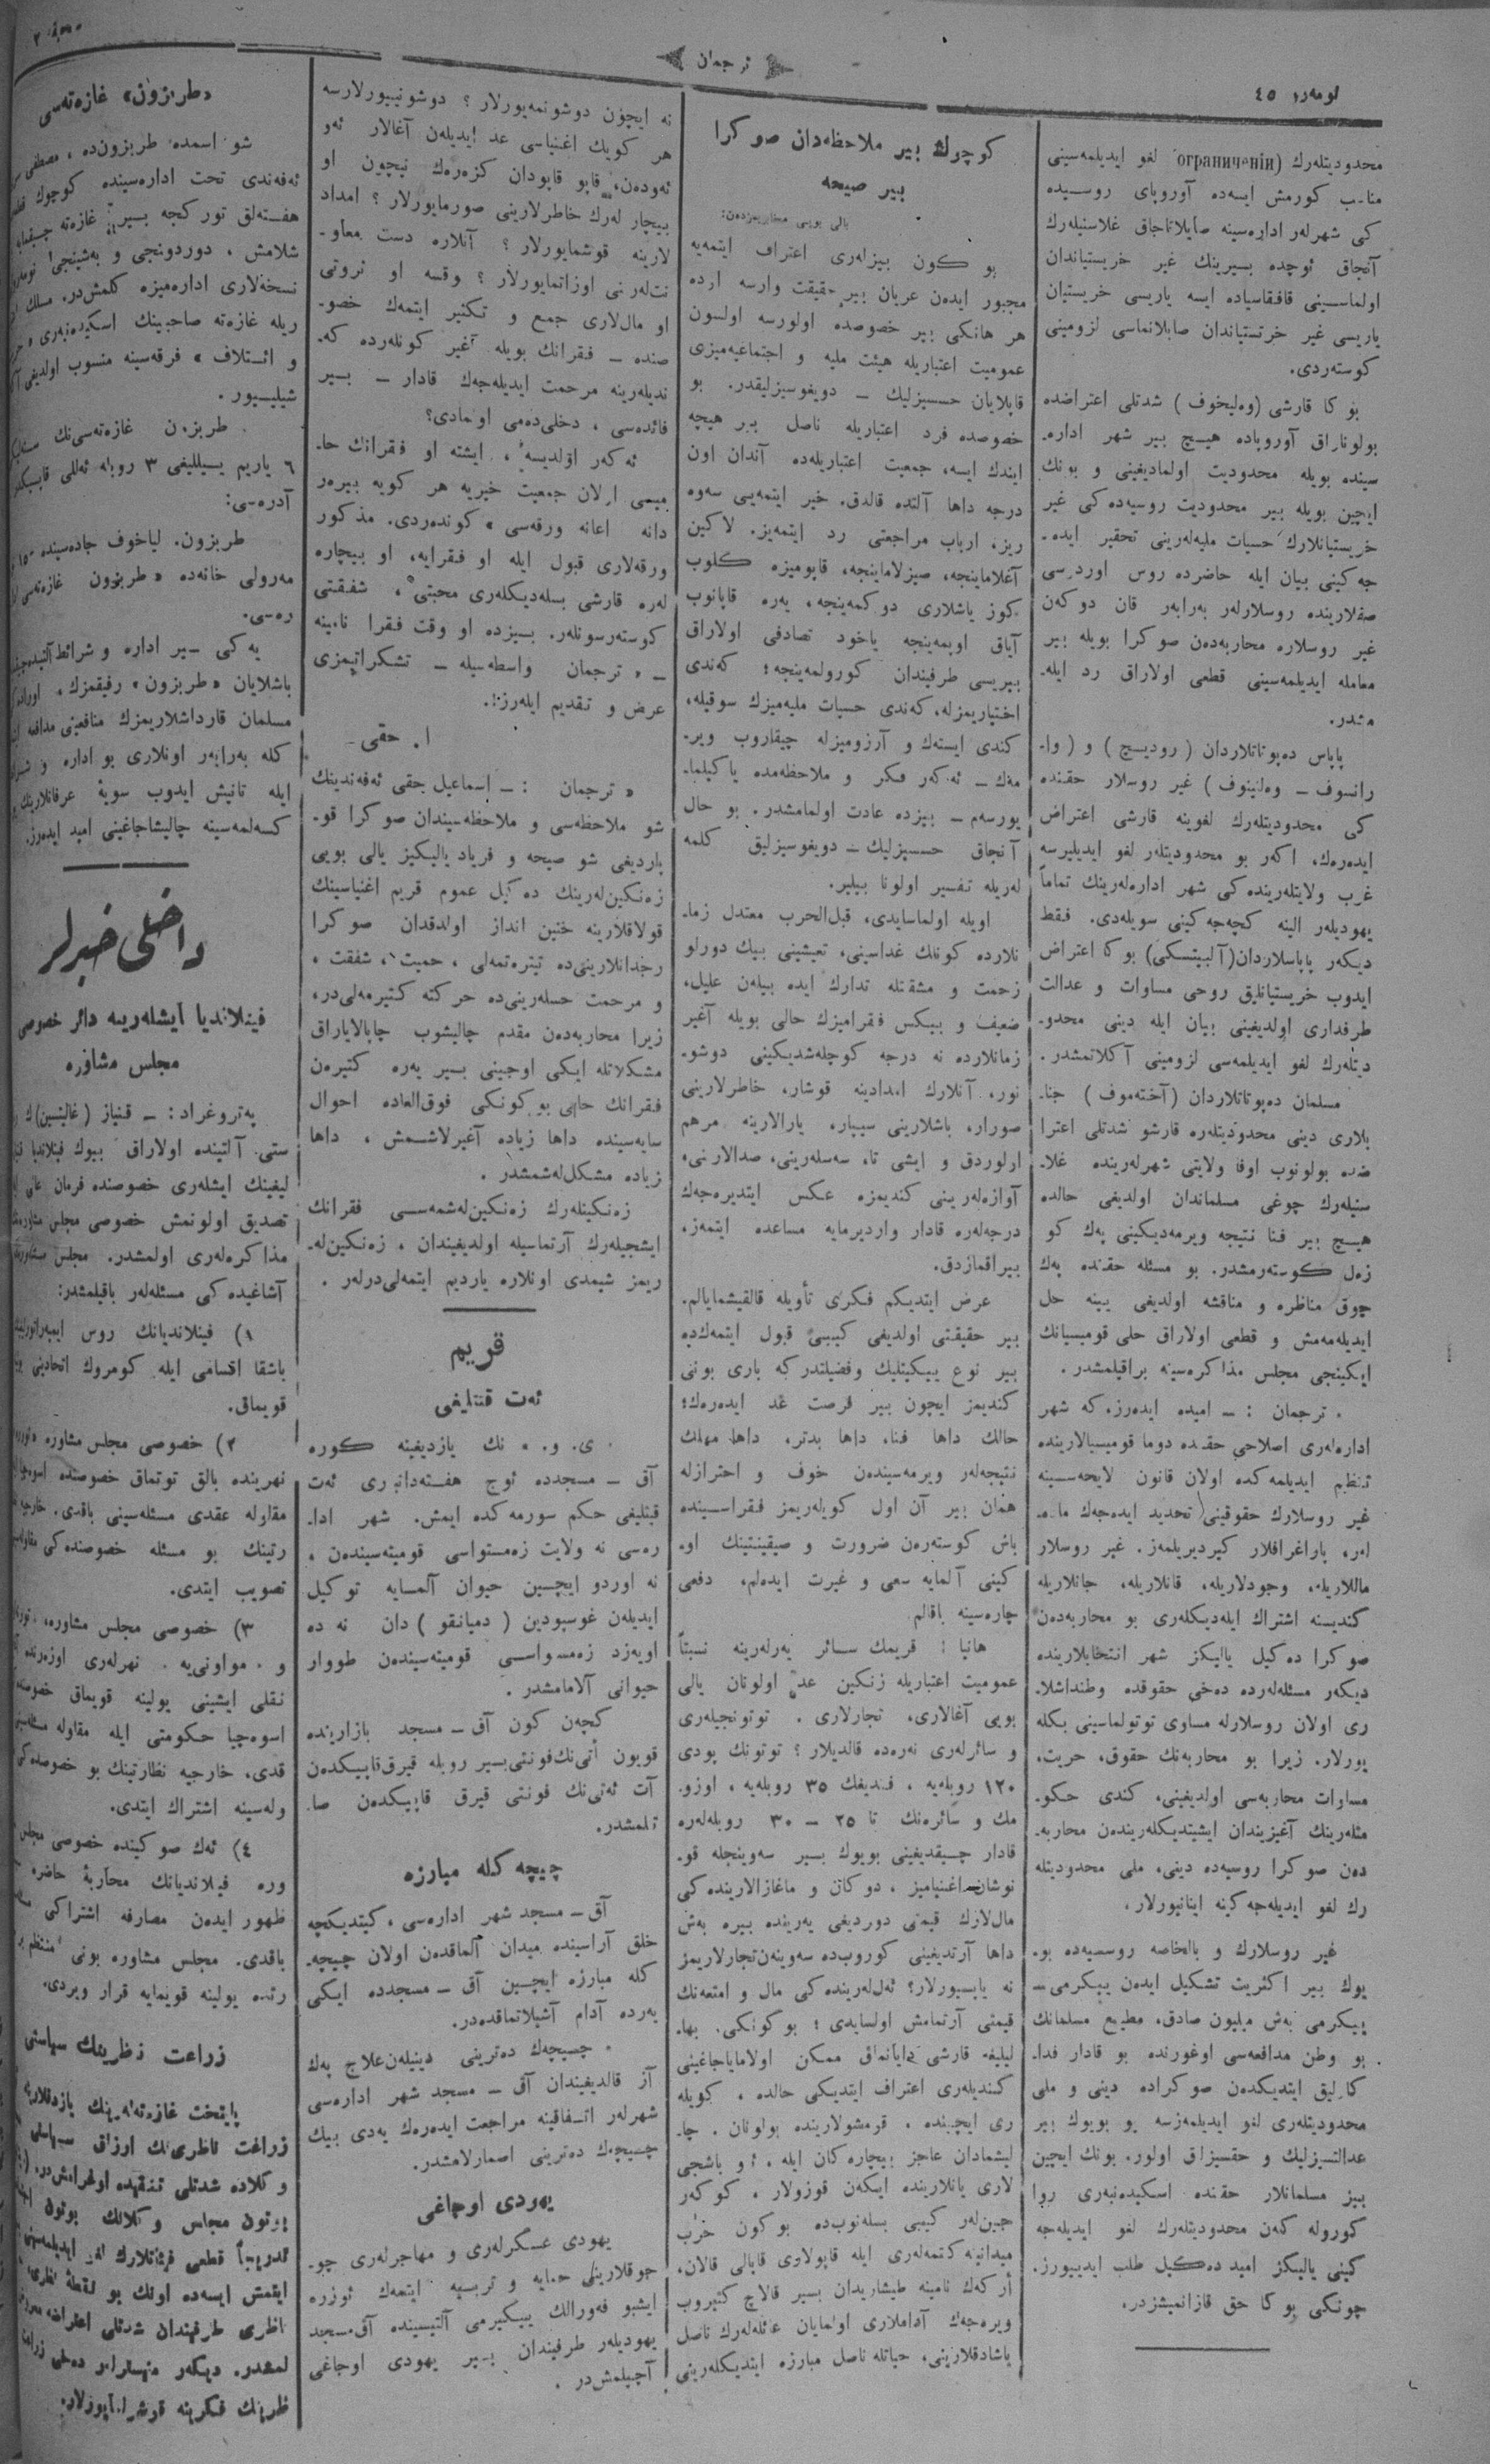 نومەرو ٤٥
ترجمان
صحیفە ٢
محدودیتلەرك (ограниченія) لغو ایدیلمەسینی
مناسب كورمش ایسەدە آوروپای روسیدە
كی شهرلەر ادارەسینە صایلاناجاق غلاسنیلەرك
آنجاق ئوچدە بیرینك غیر خریستیاندان
اولماسینی قافقاسیادە ایسە یاریسی خریستیان
یاریسی غیر خرستیاندان صایلانماسی لزومینی
كوستەردی.
بو كا قارشی (وەلیخوف) شدتلی اعتراضدە
بولوناراق آوروپادە هیچ بیر شهر ادارە-
سیندە بویلە محدودیت اولمادیغینی و بونك
ایچین بویلە بیر محدودیت روسیەدەكی غیر
خریستیانلارك حسیات ملیەلەرینی تحقیر ایدە-
جەكینی بیان ایلە حاضردە روس اوردوسی
صفلاریندە روسلارلەر بەرابەر قان دوكەن
غیر روسلارە محاربەدەن صوكرا بویلە بیر
معاملە ایدیلمەسینی قطعی اولاراق رد ایلە-
مشدر.
پاپاس دەپوتاتلاردان (رودیچ) و (وا-
رانسوف – وەلنینوف) غیر روسلار حقندە
كی محدودیتلەرك لغوینە قارشی اعتراض
ایدەرەك، اكەر بو محدودیتلەر لغو ایدیلیرسە
غرب ولایتلەریندەكی شهر ادارەلەرینك تماماً
یهودیلەر الینە كچەجەكینی سویلەدی. فقط
دیكەر پاپاسلاردان(آلبیتسكی) بوكا اعتراض
ایدوب خریستیانلیق روحی مساوات و عدالت
طرفداری اولدیغینی بیان ایلە دینی محدو-
دیتلەرك لغو ایدیلمەسی لزومینی آكلاتمشدر.
مسلمان دەپوتاتلاردان (آختەموف) جنا-
بلاری دینی محدودیتلەرە قارشو شدتلی اعترا
ضدە بولونوب اوفا ولایتی شهرلەریندە غلا-
سنیلەرك چوغی مسلماندان اولدیغی حالدە
هیچ بیر فنا نتیجە ویرمەدیكینی پەك كو
زەل كوستەرمشدر. بو مسئلە حقندە پەك
چوق مناظرە و مناقشە اولدیغی یینە حل
ایدیلەمەمش و قطعی اولاراق حلی قومیسیانك
ایكینجی مجلس مذاكرەسینە براقیلمشدر.
« ترجمان : – امیدە ایدەرز، كە شهر
ادارەلەری اصلاحی حقندە دوما قومیسیالاریندە
تنظیم ایدیلمەكدە اولان قانون لایحەسینە
غیر روسلارك حقوقینی تحدید ایدەجەك مادە-
لەر، پاراغرافلار كیردیریلمەز. غیر روسلار
ماللاریلە، وجودلاریلە، قانلاریلە، جانلاریلە
كندیسنە اشتراك ایلەدیكلەری بو محاربەدەن
صوكرا دەكیل یالیكز شهر انتخابلاریندە
دیكەر مسئلەلەردە دەخی حقوقدە وطنداشلا-
ری اولان روسلارلە مساوی توتولماسینی بكلە
یورلار. زیرا بو محاربەنك حقوق، حریت،
مساوات محاربەسی اولدیغینی، كندی حكو-
متلەرینك آغیزیندان ایشیتدیكلەریندەن محاربە-
دەن صوكرا روسیەدە دینی، ملی محدودیتلە
رك لغو ایدیلەجەكینە اینانیورلار.
غیر روسلارك و بالخاصە روسیەدە بو-
یوك بیر اكثریت تشكیل ایدەن ییكرمی –
ییكرمی بەش میلیون صادق، مطیع مسلمانك
بو وطن مدافعەسی اوغورندە بو قادار فدا-
كارلیق ایتدیكدەن صوكرادە دینی و ملی
محدودیتلەری لغو ایدیلمەزسە بو بویوك بیر
عدالتسیزلیك و حقسیزلق اولور. بونك ایچین
بیز مسلمانلار حقندە اسكیدەنبەری روا
كورولە كەن محدودیتلەرك لغو ایدیلەجە
كینی یالیكز امید دەكیل طلب ایدییورز.
چونكی بو كا حق قازانمیشزدر.
كوچرك بیر ملاحظەدان صوكرا
بیر صیحە
یالی بویی مخابریمزدەن:
بو كون بیزلەری اعتراف ایتمەیە
مجبور ایدەن عریان بیر حقیقت وارسە اردە
هر هانكی بیر خصوصدە اولورسە اولسون
عمومیت اعتباریلە هیئت ملیە و اجتماعیەمیزی
قاپلایان حسسیزلیك – دویغوسیزلیقدر. بو
خصوصدە فرد اعتباریلە ناصل بیر هیچە
ایندك ایسە، جمعیت اعتباریلەدە آندان اون
درجە داها آلتدە قالدق. خیر ایتمەیی سەوە
ریز، ارباب مراجعتی رد ایتمەیز. لاكین
آغلاماینجە، صیزلاماینجە، قاپومیزە كلوب
كوز یاشلاری دوكمەینجە، یەرە قاپانوب
آیاق اوپمەینجە یاخود تصادفی اولاراق
بیریسی طرفیندان كورولمەینجە؛ كەندی
اختیاریمزلە، كەندی حسیات ملیەمیزك سوقیلە،
كندی ایستەك و آرزومیزلە چیقاروب ویر-
مەك – ئەكەر فكر و ملاحظەمدە یاكیلما-
یورسەم – بیزدە عادت اولمامشدر. بو حال
آنجاق حسسیزلیك – دویغوسیزلیق كلمە
لەریلە تفسیر اولونا بیلیر.
اویلە اولماسایدی، قبل‌الحرب معتدل زما-
نلاردە كونلك غداسینی، تعیشینی بیك دورلو
زحمت و مشقتلە تدارك ایدە بیلەن علیل،
ضعیف و بیكس فقرامیزك حالی بویلە آغیر
زمانلاردە نە درجە كوچلەشدیكینی دوشو-
نور، آنلارك امدادینە قوشار، خاطرلارینی
صورار، باشلارینی سیپار، یارالارینە مرهم
ارلوردق و ایشی تا، سەسلەرینی، صدالارنی،
آوازەلەرینی كندیمزە عكس ایتدیرەجەك
درجەلەرە قادار واردیرمایە مساعدە ایتمەز،
بیراقمازدق.
عرض ایتدیكم فكری تأویلە قالقیشمایالم.
بیر حقیقتی اولدیغی كیبی قبول ایتمەك‌دە
بیر نوع ییكیتلیك وفضیلتدر كە باری بونی
كندیمز ایچون بیر فرصت عد ایدەرەك؛
حالك داها فنا، داها بدتر، داها مهلك
نتیجەلەر ویرمەسیندەن خوف و احترازلە
همان بیر آن اول كویلەریمز فقراسیندە
باش كوستەرەن ضرورت و صیقینتینك او-
كینی آلمایە سعی و غیرت ایدەلم، دفعی
چارەسینە باقالم
هانیا : قریمك سائر یەرلەرینە نسبتاً
عمومیت اعتباریلە زنكین عد اولونان یالی
بویی آغالاری، تجارلاری . توتونجیلەری
و سائرلەری نەرەدە قالدیلار؟ توتونك پودی
١٢٠ روبلەیە ، فندیغك ٣٥ روبلەیە ، اوزو-
مك و سائرەنك تا ٢٥ – ٣٠ روبلەلەرە
قادار چیقدیغینی بویوك بیر سەوینجلە قو-
نوشان اغنیامیز ، دوكان و ماغازالاریندەكی
مال‌لارك قیمتی دوردیغی یەریندە بیرە بەش
داها آرتدیغینی كوروب‌دە سەوینەن تجارلاریمز
نە یاپیورلار؟ ئەل‌لەریندەكی مال و امتعەنك
قیمتی آرتمامش اولسایدی ؛ بو كونكی بها-
لیلیغە قارشی طایانماق ممكن اولامایاجاغینی
كندیلەری اعتراف ایتدیكی حالدە ، كویلە
ری ایچیندە ، قومشولاریندە بولونان ، چا-
لیشمادان عاجز بیچارەكان ایلە ، ئو باشجی
لاری یانلاریندە ایكەن قوزولار ، كوكەر
جین‌لەر كیبی بسلەنوب‌دە بو كون حرب
میدانینە كتمەلەری ایلە قاپولاری قاپالی قالان،
أركەك نامینە طیشاریدان بیر قالاچ كتیروب
ویرەجەك آداملاری اولمایان عائلەلەرك ناصل
یاشادقلارینی، حیاتلە ناصل مبارزە ایتدیكلەرینی
نە ایچون دوشونمەیورلار؟ دوشونییورلارسە
هر كویك اغنیاسی عد ایدیلەن آغالار ئەو
ئەودەن، قاپو قاپودان كزەرەك نیچون او
بیچارەلەرك خاطرلارینی صورمایورلار؟ امداد
لارینە قوشمایورلار؟ آنلارە دست معاو-
نتلەرنی اوزاتمایورلار؟ وقسە او ثروتی
او مال‌لاری جمع و تكثیر ایتمەك خصو-
صندە – فقرانك بویلە آغیر كونلەردە كە-
ندیلەرینە مرحمت ایدیلەجەك قادار – بیر
فائدەسی ، دخلی‌دەمی اولمادی؟
ئەكەر اولدیسە ، ایشتە او فقرانك حا-
میسی ارلان جمعیت خیریە هر كویە بیرەر
دانە « اعانە ورقەسی » كوندەردی. مذكور
ورقەلاری قبول ایلە او فقرایە، او بیچارە
لەرە قارشی بسلەدیكلەری محبتی ، شفقتی
كوستەرسونلەر. بیزدە او وقت فقرا نامینە
– « ترجمان » واسطەسیلە – تشكراتیمزی
عرض و تقدیم ایلەرز.
ا. حقی.
« ترجمان » : – اسماعیل حقی ئەفەندینك
شو ملاحظەسی و ملاحظەسیندان صوكرا قو-
پاردیغی شو صیحە و فریاد یالیكیز یالی بویی
زەنكین‌لەرینك دەكیل عموم قریم اغنیاسینك
قولاقلارینە خنین انداز اولدقدان صوكرا
وجدانلارینی‌دە تیترەتمەلی ، حمیت ، شفقت ،
و مرحمت حسلەرینی‌دە حركتە كتیرمەلی‌در،
زیرا محاربەدەن مقدم چالیشوب چابالایاراق
مشكلاتلە ایكی اوجینی بیر یەرە كتیرەن
فقرانك حالی بو كونكی فوق‌العادە احوال
سایەسیندە داها زیادە آغیرلاشمش ، داها
زیادە مشكل‌لەشمشدر.
زەنكینلەرك زەنكین‌لەشمەسی فقرانك
ایشجیلەرك آرتماسیلە اولدیغیندان ، زەنكین‌لە-
ریمز شیمدی اونلارە یاردیم ایتمەلی‌درلەر .
قریم
ئەت قتلیغی
« ی. و. » نك یازدیغینە كورە
آق – مسجددە ئوچ هفتەدانبری ئەت
قیتلیغی حكم سورمەكدە ایمش. شهر ادا-
رەسی نە ولایت زەمستواسی قومیتەسیندەن ،
نە اوردو ایچین حیوان آلمسایە توكیل
ایدیلەن غوسپودین (دمیانقو) دان نە دە
اویەزد زەمستواسی قومیتەسیندەن طووار
حیوانی آلامامشدر .
كچەن كون آق – مسجد بازاریندە
قویون أتی‌نك‌فونتی‌بیر روبلە قیرق‌قاپیكدەن
آت ئەتی‌نك فونتی قیرق قاپیكدەن صا-
تلمشدر.
چیچەكلە مبارزە
آق – مسجد شهر ادارەسی ، كیتدیكچە
خلق آراسیندە میدان آلماقدەن اولان چیچە-
كلە مبارزە ایچین آق – مسجددە ایكی
یەردە آدام آشیلاتماقدەدر.
« چیچەك دەترینی » دینیلەن‌علاج پەك
آز قالدیغیندان آق – مسجد شهر ادارەسی
شهرلەر اتفاقینە مراجعت ایدەرەك یەدی بیك
چیچەك دەترینی اصمارلامشدر.
یهودی اوجاغی
یهودی عسكرلەری و مهاجرلەری چو-
جوقلارینی حمایە و تربیە ایتمەك ئوزرە
ایشبو فەورالك ییكیرمی آلتیسیندە آق‌مسجد
یهودیلەر طرفیندان بیر یهودی اوجاغی
آچیلمش‌در .
«طربزون» غازەتەسی
شو اسمدە طربزون‌دە ، مصطفی
ئەفەندی تحت ادارەسیندە كوچوك
هفتەلق توركجە بیر غازەتە چیقماغە
شلامش ، دوردونجی و بەشینجی نومەرو
نسخەلاری ادارەمیزە كلمش‌در. مسلك
ریلە غازەتە صاحبینك اسكیدەنبەری
و ائتلاف » فرقەسینە منسوب اولدیغی
شیلیور .
طربزون غازەتەسی‌نك
٦ یاریم ییللیغی ٣ روبلە ئەللی قاپیكدر
آدرەسی:
طربزون. لیاخوف جادەسیندە
مەرولی خانەدە « طربزون غازەتەسی ادا
رەسی.
یەكی بیر ادارە و شرائط آلتیندە
باشلایان « طربزون » رفیقمزك ، اورادە
مسلمان قارداشلاریمزك منافعینی مدافعە
كلە بەرابەر اونلاری بو ادارە و
ایلە تانیش ایدوب سویۀ عرفانلارینك
كسەلمەسینە چالیشاجاغینی امید ایدەرز.
داخلی خبرلر
فینلاندیا ایشلەرینە دائر خصوصی
مجلس مشاورە
پەتروغراد: – قنیاز (غالیتسین)ك
ستی آلتیندە اولاراق بیوك فینلاندیا
لیغینك ایشلەری خصوصندە فرمان عالی
تصدیق اولونمش خصوصی مجلس مشاورە
مذاكرەلەری اولمشدر. مجلس مشاورە
آشاغیدەكی مسئلەلەر باقیلمشدر:
١) فینلاندیانك روس ایمپەراتورلغینك
باشقا اقسامی ایلە كومروك اتحادینی
قویماق.
٢) خصوصی مجلس مشاورە
نهریندە بالق توتماق خصوصندە
مقاولە عقدی مسئلەسینی باقدی. خارجیە
رتینك بو مسئلە خصوصندەكی
تصویب ایتدی.
٣) خصوصی مجلس مشاورە،
و « مواونی‌یە » نهرلەری اوزەریندە
نقلی ایشینی یولینە قویماق
اسوەچیا حكومتی ایلە مقاولە
قدی، خارجیە نظارتینك بو خصوصدەكی
ولەسینە اشتراك ایتدی.
٤) ئەك صوكیندە خصوصی مجلس
ورە فینلاندیانك محاربۀ حاضرە
ظهور ایدەن مصارفە اشتراكی
باقدی. مجلس مشاورە بونی منتظم
رتدە یولینە قویمایە قرار ویردی.
زراعت ناظرینك سیاستی
پایتخت غازەتەلەرینك یازدقلارینە
زراعت ناظری‌نك ارزاق سیاستی
و كلادە شدتلی تنقیدە اوغرامش‌در.
بوتون مجلس وكلانك بوتون
تقریباً قطعی فیئاتلارك لغو ایدیلمەسینی
ایتمش ایسەدە اونك بو نقطۀ نظری
ناظری طرفیندان شدتلی اعتراضە
لمشدر. دیكەر منیسترلر دەخی زراعت
ظرینك فكرینە قوشولمایورلار.